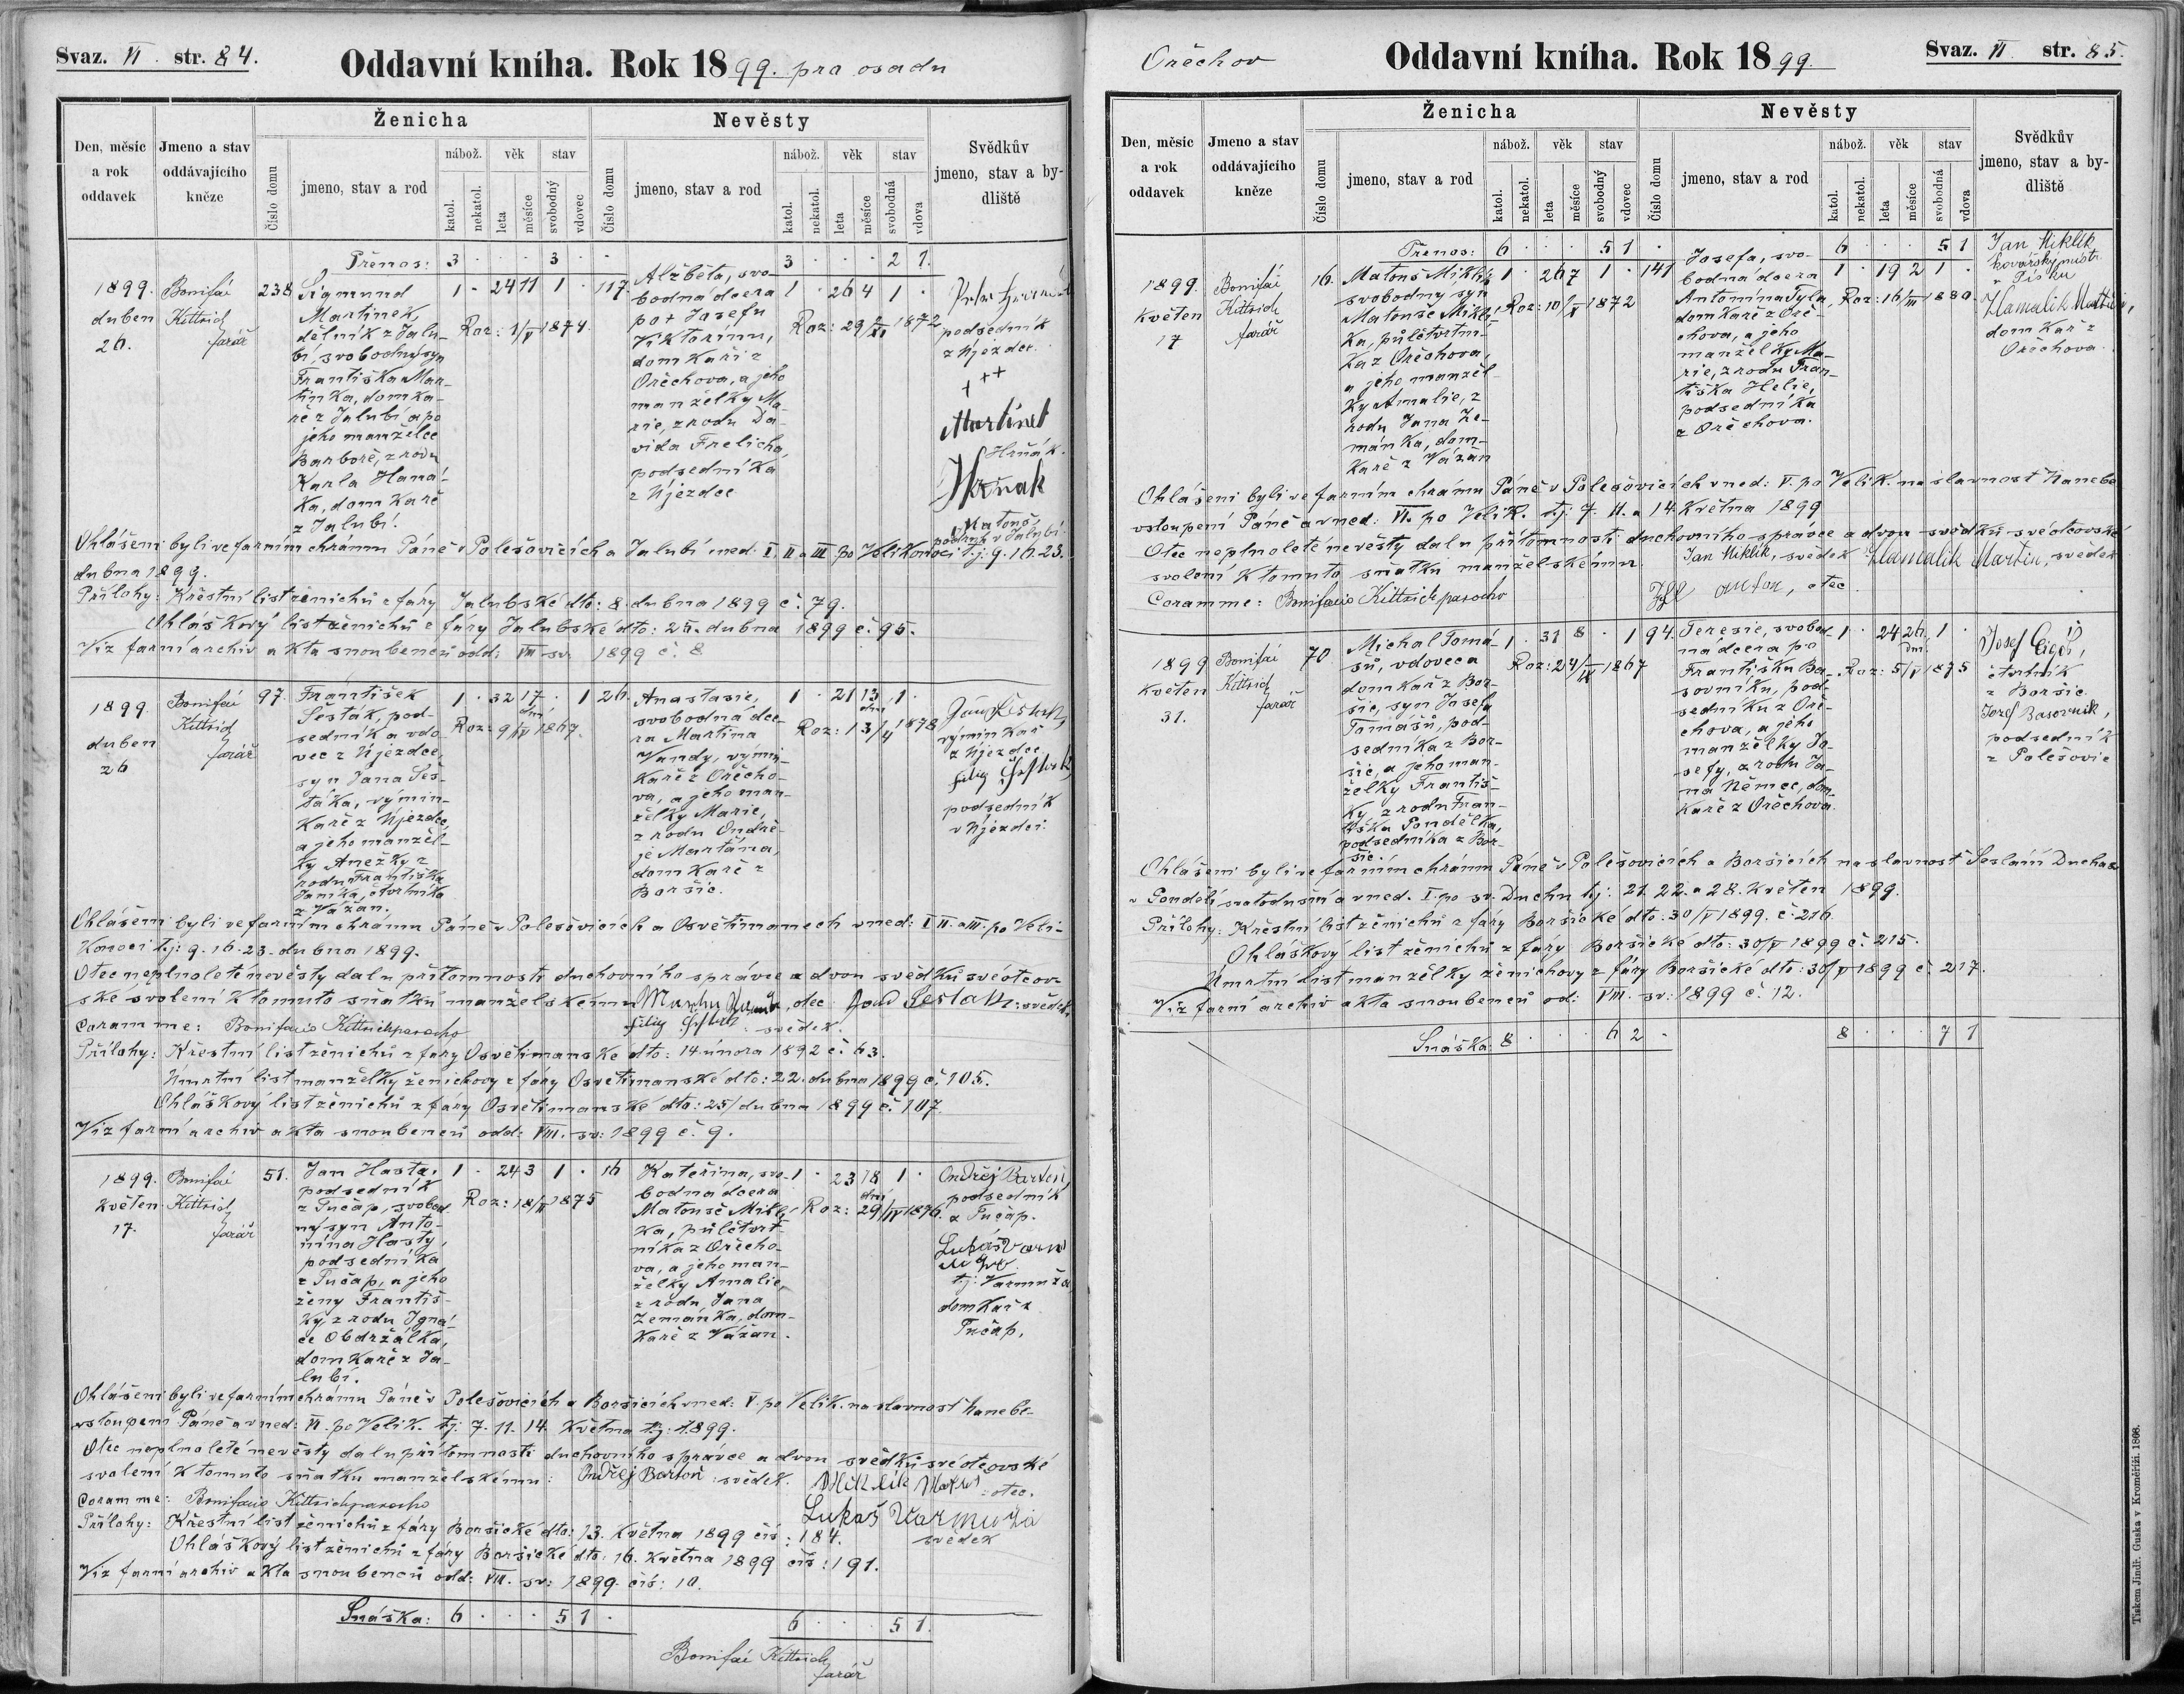 Svaz. VI. str. 84.
Oddavní kniha. Rok 1899. pro osadu
Den, měsíc a rok oddavek
Jmeno a stav oddávajícího kněze
Ženicha
Číslo domu
jmeno, stav a rod
nábož.
katol.
nekatol.
věk
leta
měsíce
stav
svobodný
vdovec
Nevěsty
Číslo domu
jmeno, stav a rod
nábož.
katol.
nekatol.
věk
leta
měsíce
stav
svobodná
vdova
Svědkův jmeno, stav a bydliště
Přenos: 3 . . . 3 . . 3 . . . 2 1.
1899.
duben
26.
Bonifác
Kittrich
farář
238.
Sigmund
Martinek,
dělník z Jalu-
bí, svobodný syn
Františka Mar-
tinka, domka-
ře z Jalubí a po
jeho manželce
Barboře, z rodu
Karla Hamá-
ka, domkaře
z Jalubí.
1 . 24 11 1 .
Roz: 1/V 1874.
117.
Alžběta, svo-
bodná dcera
po + Josefu
Viktorinu,
domkaři z
Ořechova, a jeho
manželky Ma-
rie, z rodu Da-
vida Frelicha,
podsedníka
z Újezdce
1 . 26 4 1 .
Roz: 29/XI 1872
podsedník
z Újezdce.
+++
Martinek
Hrňák.
Hrňak
Matouš,
podsed. v Jalubí.
Ohlášeni byli ve farním chrámu Páně v Polešovicích a Jalubí v ned. I. II a III po Velikonoci t.j. 9. 16. 23.
dubna 1899.
Přílohy: Křestní list ženichů z fary Jalubské dto: 8. dubna 1899 č. 79.
Ohláškový list ženichů z fary Jalubské dto: 25. dubna 1899 č. 95.
Viz farní archiv akta snoubenců odd: VIII sv. 1899 č. 8
1899.
duben
26
Bonifác
Kittrich
farář
97.
František
Šesták, pod-
sedník a vdo-
vec z Újezdce,
syn Jana Šes-
táka, výmin-
kaře z Újezdce,
a jeho manžel-
ky Anežky z
rodu Františka
Janíka, čtvrtníka
z Vážan.
1 . 32 17 . 1
dní
Roz: 9/IV 1867.
26.
Anastasie,
svobodná dce-
ra Martina
Vandy, výmin-
kaře z Ořecho-
va, a jeho man-
želky Marie,
z rodu Ondře-
je Martána,
domkaře z
Boršic.
1 . 21 13 1 .
dní
Roz: 13/4 1878
Jan Šestak,
výminkář
z Újezdce
filip Šestak
podsedník
v Újezdci.
Ohlášeni byli ve farním chrámu Páně v Polešovicích a Osvětimanech v ned: I II. a III. po Veli-
konoci t.j: 9. 16. 23. dubna 1899.
Otec neplnoleté nevěsty dal u přítomnosti duchovního správce a dvou svědků své otcov-
ské svolení k tomuto sňatku manželskému Martin Vanda, otec Jan Šestak: svědek.
Coram me: Bonifacio Kittrich parocho filip Šestak: svědek.
Přílohy: Křestní list ženichů z fary Osvětimanské dto: 14. února 1892 č. 63.
Úmrtní list manželky ženichovy z fáry Osvětimanské dto: 22. dubna 1899 č. 105.
Ohláškový list ženichů z fáry Osvětimanské dto: 25/dubna 1899 č. 107.
Viz farní archiv akta snoubenců odd: VIII. sv: 1899 č. 9.
1899.
květen
17.
Bonifác
Kittrich
farář
51.
Jan Hasta,
podsedník
z Tučap, svobod-
ný syn Anto-
nína Hasty,
podsedníka
z Tučap, a jeho
ženy Františ-
ky, z rodu Igná-
ce Obdržálka,
domkaře z Ja-
lubí.
1 . 24 3 1 .
Roz: 18/II 1875
16
Kateřina, svo-
bodná dcera
Matouše Miklí-
ka, půlčtvrt-
níka z Ořecho-
va, a jeho man-
želky Amalie,
z rodu Jana
Zemánka, dom-
kaře z Vážan.
1 . 23 18 1 .
dní
Roz: 29/IV 1876.
Ondřej Bartoň,
podsedník
z Tučap.
Lukáš Varm
t.j: Varmuža
domkař z
Tučap.
Ohlášeni byli ve farním chrámu Páně v Polešovicích a Boršicích v ned: V. po Velik. na slavnost Nanebe-
vstoupení Páně a v ned: VI. po Velik. t.j. 7. 11. 14. května t.j: 1899.
Otec neplnoleté nevěsty dal u přítomnosti duchovního správce a dvou svědků své otcovské
svolení k tomuto sňatku manželskému: Ondřej Bartoň: svědek. Miklík Matouš: otec.
Coram me: Bonifacio Kittrich parocho Lukaš Varmuža
svědek
Přílohy: Křestní list ženichů z fáry Boršické dto: 13. května 1899 čís: 184.
Ohláškový list ženichů z fáry Boršické dto: 16. května 1899 čís: 191.
Viz farní archiv akta snoubenců odd: VIII. sv: 1899 čís: 10.
Snáška: 6 . . . 5 1 . 6 . . . 5 1.
Bonifác Kittrich
farář
Ořechov
Oddavní kniha. Rok 1899.
Svaz. VI. str. 85.
Den, měsíc a rok oddavek
Jmeno a stav oddávajícího kněze
Ženicha
Číslo domu
jmeno, stav a rod
nábož.
katol.
nekatol.
věk
leta
měsíce
stav
svobodný
vdovec
Nevěsty
Číslo domu
jmeno, stav a rod
nábož.
katol.
nekatol.
věk
leta
měsíce
stav
svobodná
vdova
Svědkův jmeno, stav a bydliště
Přenos: 6 . . . 5 1 . 6 . . . 5 1
1899.
Květen
17
Bonifác
Kittrich
farář
16.
Matouš Miklík,
svobodný syn
Matouše Miklí-
ka, půlčtvrtní-
ka z Ořechova,
a jeho manžel-
ky Amalie, z
rodu Jana Ze-
mánka, dom-
kaře z Vážan
1 . 26 7 1 .
Roz: 10/X 1872
141
Josefa, svo-
bodná dcera
Antonína Tyla,
domkaře z Oře-
chova, a jeho
manželky Ma-
rie, z rodu Fran-
tiška Helie,
podsedníka
z Ořechova.
1 . 19 2 1 .
Roz: 16/III 1880.
Jan Miklík
kovářský mistr
v Písku
Hamalik Martin,
domkař z
Ořechova.
Ohlášeni byli ve farním chrámu Páně v Polešovicích v ned: V. po Velik. na slavnost Nanebe
vstoupení Páně a v ned: VI. po Velik. t.j: 7. 11. a 14. května 1899
Otec neplnoleté nevěsty dal u přítomnosti duchovního správce a dvou svědků své otcovské
svolení k tomuto sňatku manželskému. Jan Miklík, svědek Hamalik Martin, svědek
Coram me: Bonifacio Kittrich parocho Tyl anton, otec.
1899
Květen
31.
Bonifác
Kittrich
farář
70
Michal Tomá-
šů, vdovec a
domkař z Bor-
šic, syn Josefa
Tomášů, pod-
sedníka z Bor-
šic, a jeho man-
želky Františ-
ky, z rodu Fran-
tiška Pondělka,
podsedníka z Bor-
šic.
1 . 31 8 . 1
Roz: 24/IX 1867
94.
Teresie, svobod-
ná dcera po
Františku Ba-
sovníku, pod-
sedníku z Oře-
chova, a jeho
manželky Jo-
sefy, z rodu Ja-
na Němce, dom-
kaře z Ořechova.
1 . 24 26 1 .
dní.
Roz: 5/V 1875
Josef Cigoš,
čtvrtník
z Boršic.
Jozef Basovnik,
podsedník
z Polešovic
Ohlášeni byli ve farním chrámu Páně v Polešovicích a Boršicích na slavnost Seslání Ducha sv.
v Pondělí svatodušní a v ned. I. po sv. Duchu t.j: 21. 22. a 28. Květen 1899.
Přílohy: Křestní list ženichů z fáry Boršické dto: 30/V 1899. č. 216.
Ohláškový list ženichů z fary Boršické dto: 30/V 1899 č. 215.
Úmrtní list manželky ženichovy z fáry Boršické dto: 30/V 1899 č. 217.
Viz farní archiv akta snoubenců od: VIII. sv: 1899 č. 12.
Snáška: 8 . . . 6 2 . 8 . . . 7 1
Tiskem Jindř. Guska v Kroměříži. 1868.